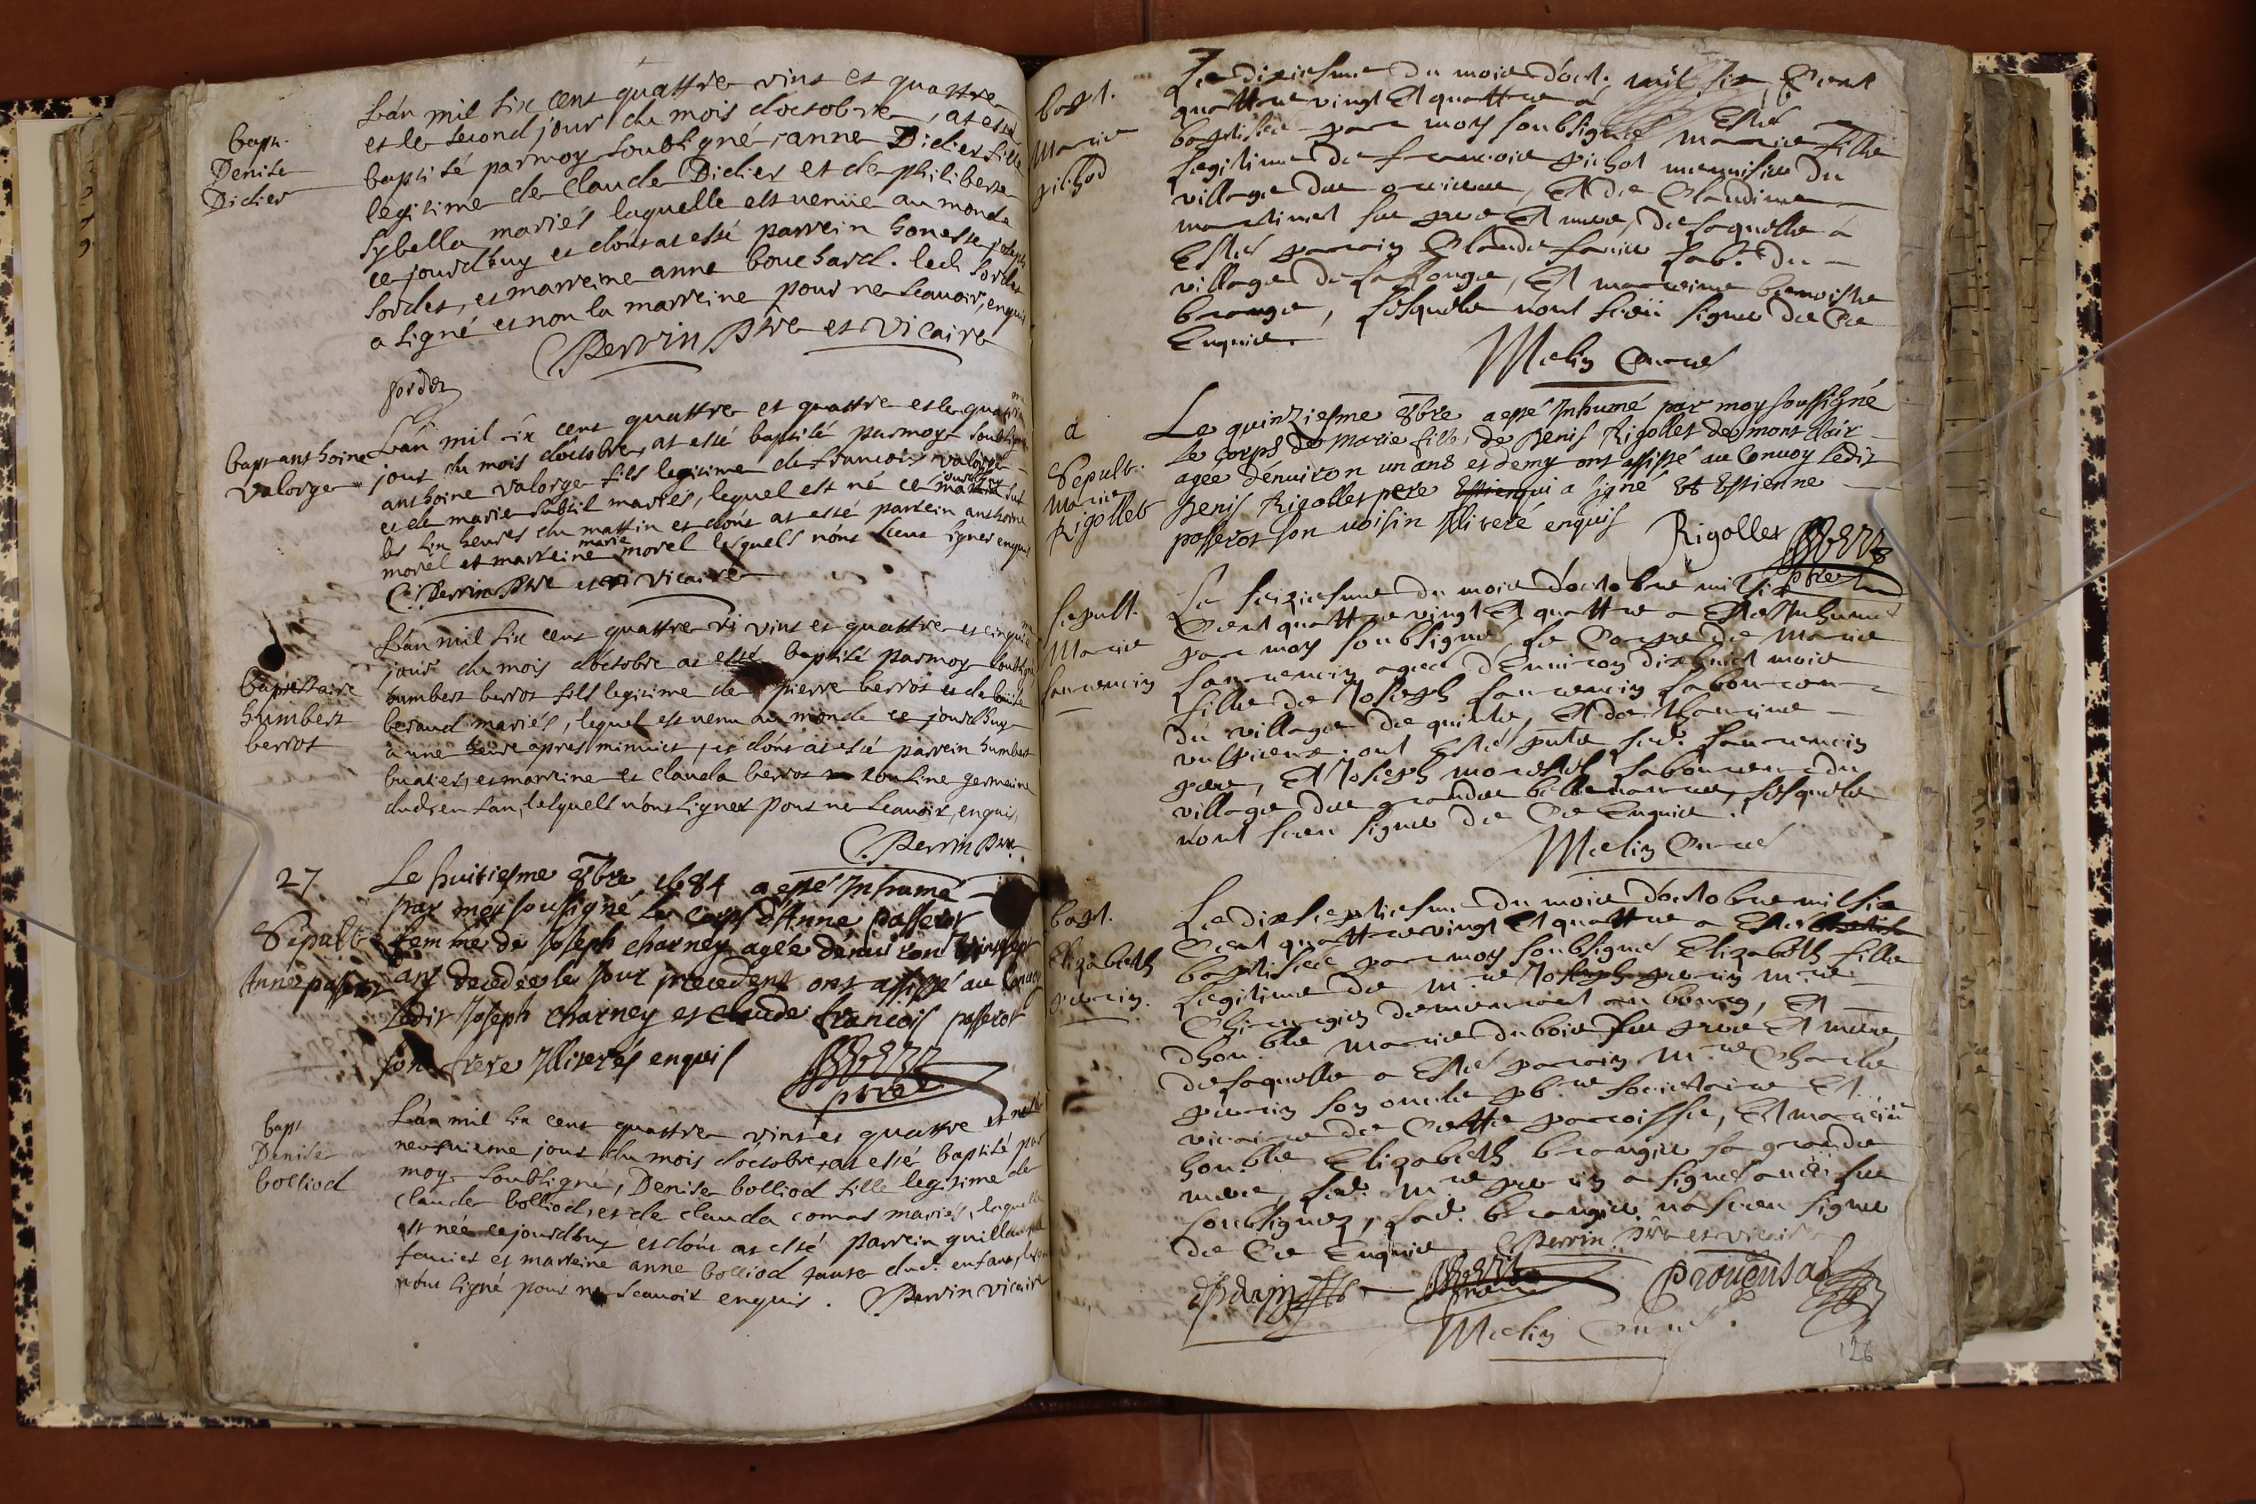 bapt.
Denise
Didier
L'an mil six cens quattre vins et quattre
et le second jour du mois d'octobre, at esté
baptisé par moy soubsigné, anne Didier fille
legitime de Claude Didier et de philiberte
sybella mariés laquelle est venüe au monde
ce jourd'huy et dont at esté parrein honeste joseph
sordet, et marreine anne bouchard. led. sordet
a signé et non la marreine pour ne scavoir, enquis
Perrin Ptre et vicaire
sordet
bapt anthoine
valorge
L'an mil six cens quattre et quattre et le quatrie
jour du mois d'octobre, at esté baptisé par moy soubsigné
anthoine valorge fils legitime de francois valorge
et de marie subtil mariés, lequel est né ce jourdhuy sur
les six heures du mattin et dont at esté parrein anthoine
morel et marreine marie morel lesquels n'ont sceu signer enquis
C. Perrin Ptre et vicaire
baptistaire
humbert
berrot
L'an mil six cens quattre vi vins et quattre et cinquie
jour du mois d'octobre at esté baptisé par moy soubsigné
humbert berrot fils legitime de pierre berrot et de
beraud mariés, lequel est venu au monde ce jourdhuy
a une heure apres minuict, et dont at esté parrein humbert
buatier, et marreine et clauda berrot cousine germaine
dud. enfan, lesquels n'ont signer pour ne scavoir, enquis,
C. Perrin Ptre
27
Sepult
Anne passerot
Le huitiesme 8bre 1684 a esté Inhumé
par moy soussigné Le Corps d'Anne passerot
femme de Joseph charney agée d'environ
ans decedée le Jour precedent ont assisté au Convoy
Ledit Joseph charney et Claude francois passerot
son frere Illiterés enquis
ptre
bapt
Denise
bolliod
L'an mil six cens quattre vins et quattre et
neufvieme jour du mois d'octobre, at esté baptisé par
moy soubsigné, Denise bolliod fille legitime de
claude bolliod, et de clauda comas mariés, laquelle
est née ce jourd'huy et dont at esté parrein
et marreine anne bolliod tante dud. enfant,
n'ont signé pour ne scavoir enquis. C. Perrin vicaire
bapt.
Marie
pichod
Le dixiesme du moie d'oct. mil six Cent
quattre vingt Et quattre a Esté
baptisée par moy soubsigné Marie fille
legitime de francoie pichot meunisier du
village de, Et de Claudine
martinet ses pere Et mere, de laquelle a
Esté parrain Claude lab. du
village de, Et marreine benoiste
, lesquels n'ont sceu signer de Ce
Enquis
Melin Curé
d
Sepult.
Marie
Rigollet
Le quinziesme 8bre a esté Inhumé par moy soussigné
Le corps de Marie fille de Denis Rigollet de mont Clair
agée d'environ un ans et demy ont assisté au Convoy Ledit
Denis Rigollet pere qui a signé Et Estienne
passerot son voisin Illiteré enquis
Rigollet
ptre
sepult.
Marie
Le seiziesme du moie d'octobre mil six
Cent quattre vingt Et quattre a Esté Inhumé
par moy soubsigné, Le Corps de Marie
agée d'Environ dixhuict moie
fille de Joseph laboureur
du village de, Et de
ont Esté pnts led.
pere, Et Joseph laboureur du
village de, lesquels
n'ont sceu signer de Ce Enquis.
Melin Curé
bapt.
Elizabeth
perrin.
Le dixseptiesme du moie d'octobre mil six
Cent quattre vingt Et quattre a Esté
baptisée par moy soubsigné Elizabeth fille
legitime de Mre Joseph perrin Mre
Chirurgien demeurant au bourg, Et
d'hon.ble Marie duboie ses pere Et mere,
de laquelle a Esté parrain Mre Charle
perrin son oncle pbre societaire Et
vicaire de Cette parroisse, Et marreine
hon.ble Elizabeth sa grande
mere, led. Mre perrin a signé avec les
soubsignez, lad. n'a sceu signer
de Ce Enquise. C. Perrin Ptre et vicaire
Prouensal
Melin Curé.
126